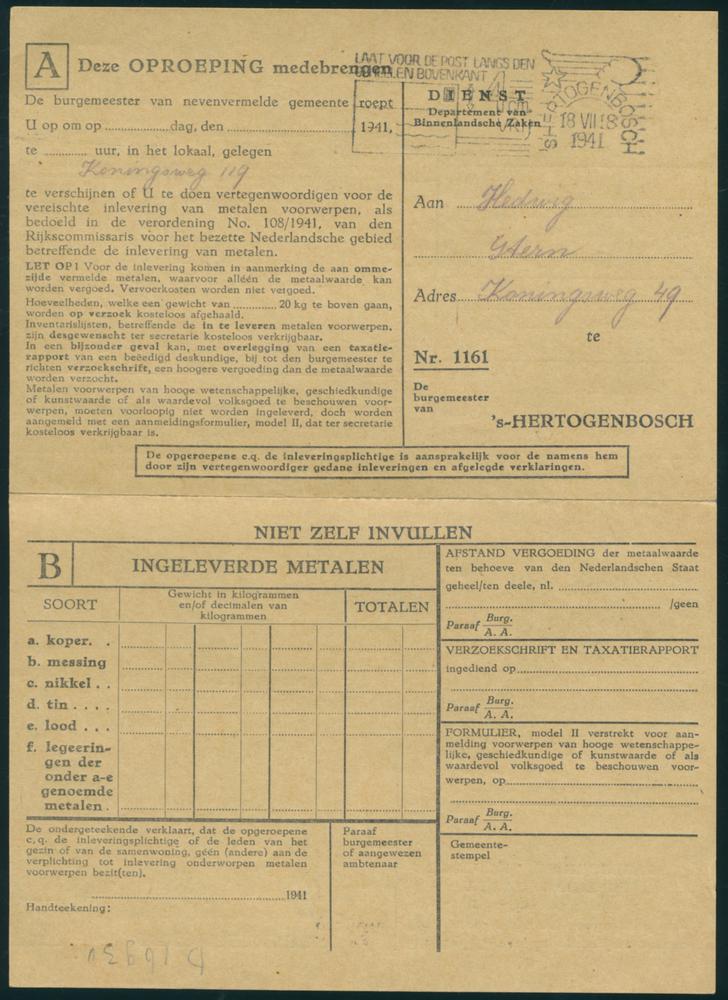 A Deze OPROEPING medebrengen
De burgemeester van nevenvermelde gemeente roept
U op om op ............dag, den ........................ 1941,
te ......... uur, in het lokaal, gelegen
Koningsweg 119
te verschijnen of U te doen vertegenwoordigen voor de
vereischte inlevering van metalen voorwerpen, als
bedoeld in de verordening No. 108/1941, van den
Rijkscommissaris voor het bezette Nederlandsche gebied
betreffende de inlevering van metalen.
LET OP! Voor de inlevering komen in aanmerking de aan omme-
zijde vermelde metalen, waarvoor alléén de metaalwaarde kan
worden vergoed. Vervoerkosten worden niet vergoed.
Hoeveelheden, welke een gewicht van ......... 20 kg te boven gaan,
worden op verzoek kosteloos afgehaald.
Inventarislijsten, betreffende de in te leveren metalen voorwerpen,
zijn desgewenscht ter secretarie kosteloos verkrijgbaar.
In een bijzonder geval kan, met overlegging van een taxatie-
rapport van een beëedigd deskundige, bij tot den burgemeester te
richten verzoekschrift, een hoogere vergoeding dan de metaalwaarde
worden verzocht.
Metalen voorwerpen van hooge wetenschappelijke, geschiedkundige
of kunstwaarde of als waardevol volksgoed te beschouwen voor-
werpen, moeten voorloopig niet worden ingeleverd, doch worden
aangemeld met een aanmeldingsformulier, model II, dat ter secretarie
kosteloos verkrijgbaar is.
LAAT VOOR DE POST LANGS DEN
BOVENKANT
'S HERTOGENBOSCH
18 VII 18
1941
DIENST
Departement van
Binnenlandsche Zaken
Aan Hedwig
Stern
Adres Koningsweg 49
te
Nr. 1161
De
burgemeester
van
's-HERTOGENBOSCH
De opgeroepene c.q. de inleveringsplichtige is aansprakelijk voor de namens hem
door zijn vertegenwoordiger gedane inleveringen en afgelegde verklaringen.
NIET ZELF INVULLEN
B INGELEVERDE METALEN
SOORT
Gewicht in kilogrammen
en/of decimalen van
kilogrammen
TOTALEN
a. koper. .
b. messing
c. nikkel . .
d. tin . . . .
e. lood . . .
f. legeerin-
gen der
onder a-e
genoemde
metalen .
De ondergeteekende verklaart, dat de opgeroepene
c.q. de inleveringsplichtige of de leden van het
gezin of van de samenwoning, géén (andere) aan de
verplichting tot inlevering onderworpen metalen
voorwerpen bezit(ten).
........................ 1941
Handteekening:
Paraaf
burgemeester
of aangewezen
ambtenaar
AFSTAND VERGOEDING der metaalwaarde
ten behoeve van den Nederlandschen Staat
geheel/ten deele, nl. ........................
........................ /geen
Paraaf Burg.
A. A.
VERZOEKSCHRIFT EN TAXATIERAPPORT
ingediend op........................
Paraaf Burg.
A. A.
FORMULIER, model II verstrekt voor aan-
melding voorwerpen van hooge wetenschappe-
lijke, geschiedkundige of kunstwaarde of als
waardevol volksgoed te beschouwen voor-
werpen, op........................
Paraaf Burg.
A. A.
Gemeente-
stempel